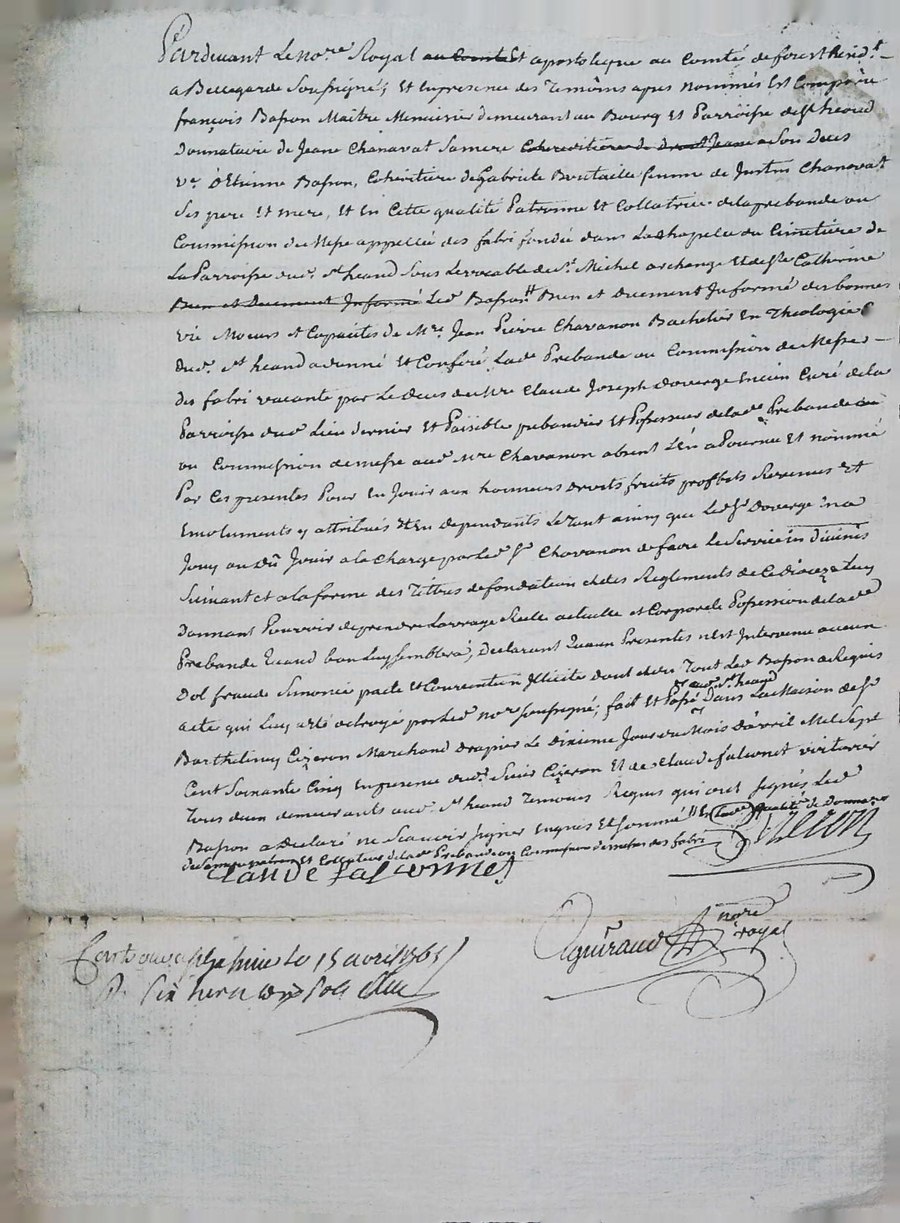 Pardevant Le no.re Royal au Comté Et apostolique au Comté de forest heredt.
a Bellegarde Soussigné; Et En presence des Temoins apres nommés Est Comparu
françois Basson Maître Menuisier demeurant au Bourg Et Parroisse de St heand
Donnataire de Jeane Chanavat Sa mere Cohereditiere de droit Jeane a Son Deces
ve. d'Etienne Basson, Coheritiere de Gabriele Boutaile femme de Justin Chanavat
Ses pere Et mere, Et En Cette qualité Patronne Et Collatrice de la prebande ou
Commission de Messe appellée des fabri fondée dans La Chapelle du Cimetiere de
La Parroisse dud. St heand Sous Le vocable de St. Michel archange Et de Ste Catherine
Bien et Duement Informé Led. Basson Bien et Duement Informé des bonnes
vie Moeurs et Capacités de Mre. Jean Pierre Chavanon Bachelier En Theologie
Dud. St heand a donné Et Conferé Lade. Prebande ou Commission de Messe
des fabri vacante par Le deces de Mre Claude Joseph Doverge Ancien Curé de la
Parroisse dud. Lieu dernier Et Paisible prebandier Et Possesseur de lade. Prebande
ou Commission de messe aud. Mre Chavanon absent L'en a Pourvu Et nommé
Par Ces presentes Pour En Jouir aux honneurs droits fruits proffits Revenus Et
Emoluments y attribués Et En dependants Le Tout ainsy que Led. Sr Doverge En a
Jouy ou Dû Jouir a la Charge par Led. Sr Chavanon de faire Le Service In Divinis
Suivant et a la forme des Tittres de fondation et des Reglements de Ce Dioceze Luy
Donnant Pouvoir de prendre La vraye Reelle actuelle et Corporele Possession de lade
Prebande Quand bon Luy Semblera, Declarant Qu'aux Presentes n'Est Intervenu aucun
Dol fraude Simonie pacte et Convention Illicite dont et du Tout Led. Basson a Requis
acte qui Luy a eté octroyé par Led. nore Soussigné; fait Et Passé aud. St heand Dans La Maison de Sr
Barthelemy Cizeron Marchand drapier Le Dixieme Jour du Mois D'avril Mil Sept
Cent Soixante Cinq En presence dud. Sieur Cizeron Et de Claude falconet
Tous deux demeurants aud. St heand Temoins Requis qui ont Signés Led.
Basson a Declaré ne Scavoir Signer Enquis Et Sommé Et Lade. qualité de Donnatre
de Sa mere patron Et Collateur de lade Prebande ou Commission de messes des fabri
Cizeron
Claude falconnet
Aguiraud nore royal
Controllé a St le 15 avril 1765